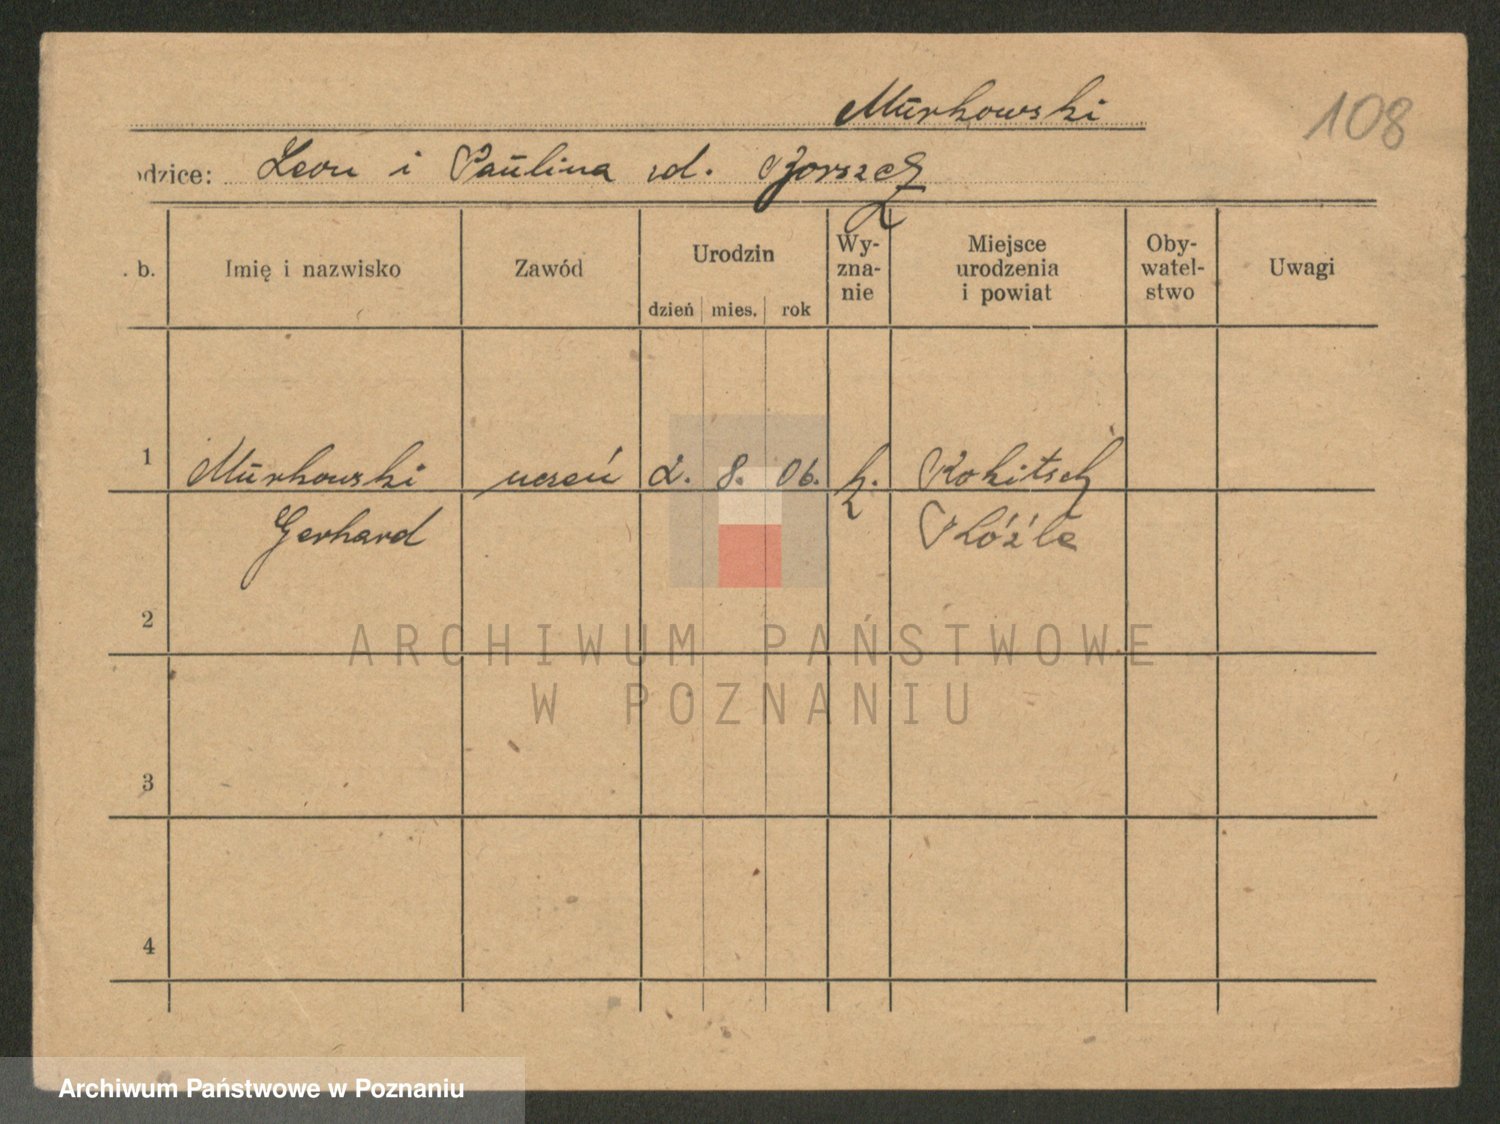 Murkowski
108
odzice: Leon i Paulina zd.
. b.
Imię i nazwisko
Zawód
Urodzin
dzień mies. rok
Wy-
zna-
nie
Miejsce
urodzenia
i powiat
Oby-
watel-
stwo
Uwagi
1 Murkowski uczeń 2. 8. 06. k. Rokitsch
Gerhard Koźle
2
ARCHIWUM PAŃSTWOWE
W POZNANIU
3
4
Archiwum Państwowe w Poznaniu